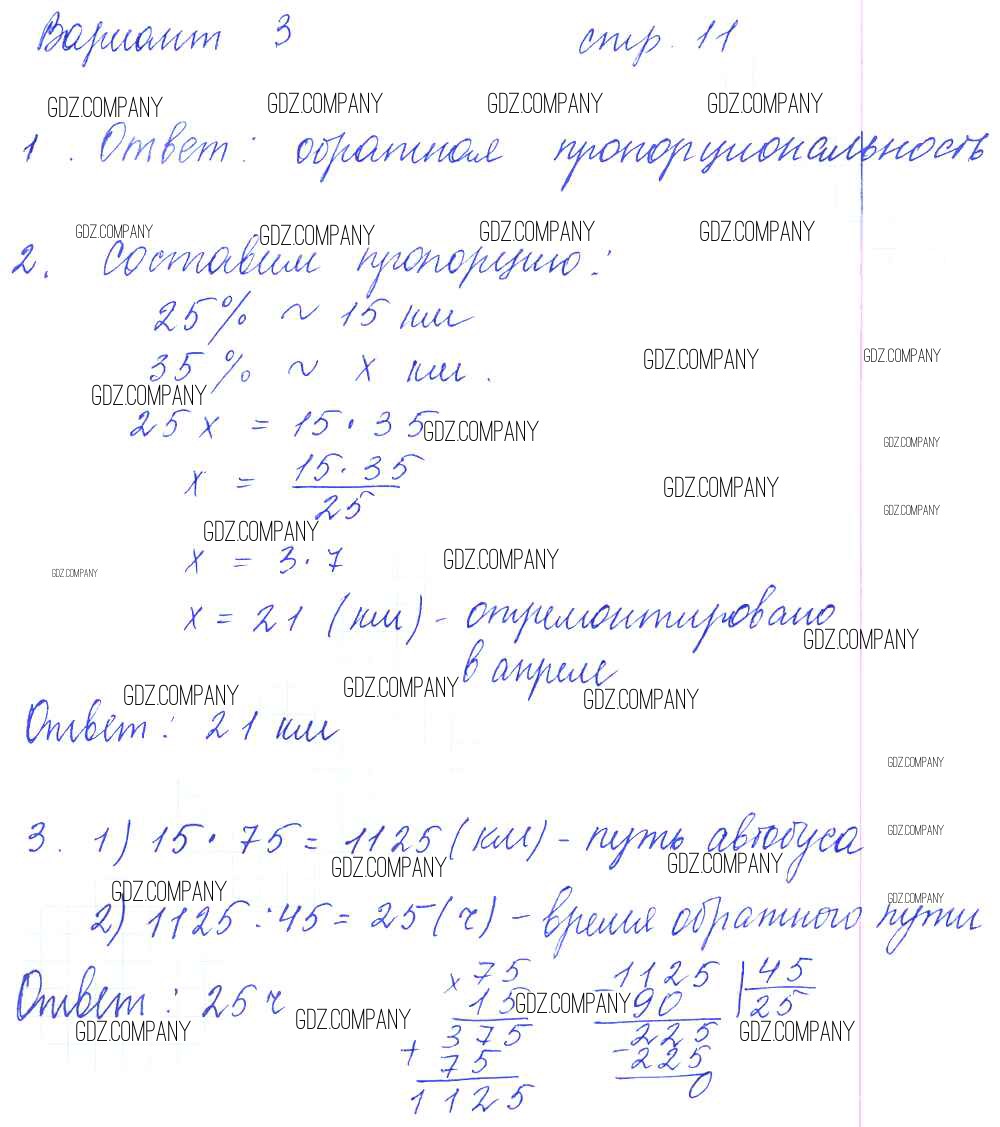 Вариант 3 стр. 11
GDZ.COMPANY GDZ.COMPANY GDZ.COMPANY GDZ.COMPANY
1. Ответ: обратная пропорциональность
GDZ.COMPANY GDZ.COMPANY GDZ.COMPANY GDZ.COMPANY
2. Составим пропорцию:
25% ~ 15 км
35% ~ x км.
GDZ.COMPANY GDZ.COMPANY
GDZ.COMPANY
25x = 15·35
GDZ.COMPANY GDZ.COMPANY
x = 15·35
25
GDZ.COMPANY GDZ.COMPANY
GDZ.COMPANY
x = 3·7
GDZ.COMPANY GDZ.COMPANY
x = 21 (км) - отремонтировано
GDZ.COMPANY
в апреле
GDZ.COMPANY GDZ.COMPANY GDZ.COMPANY
Ответ: 21 км
GDZ.COMPANY
3. 1) 15·75 = 1125 (км) - путь автобуса
GDZ.COMPANY
GDZ.COMPANY GDZ.COMPANY GDZ.COMPANY
GDZ.COMPANY
2) 1125:45 = 25 (ч) - время обратного пути
Ответ: 25 ч
×75
15
375
+ 75
1125
-1125 45
90 25
225
-225
0
GDZ.COMPANY GDZ.COMPANY GDZ.COMPANY GDZ.COMPANY